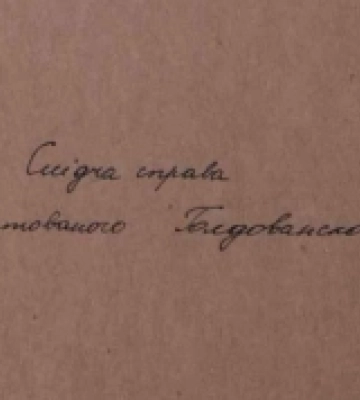 Слідча справа
тованого Голдованско